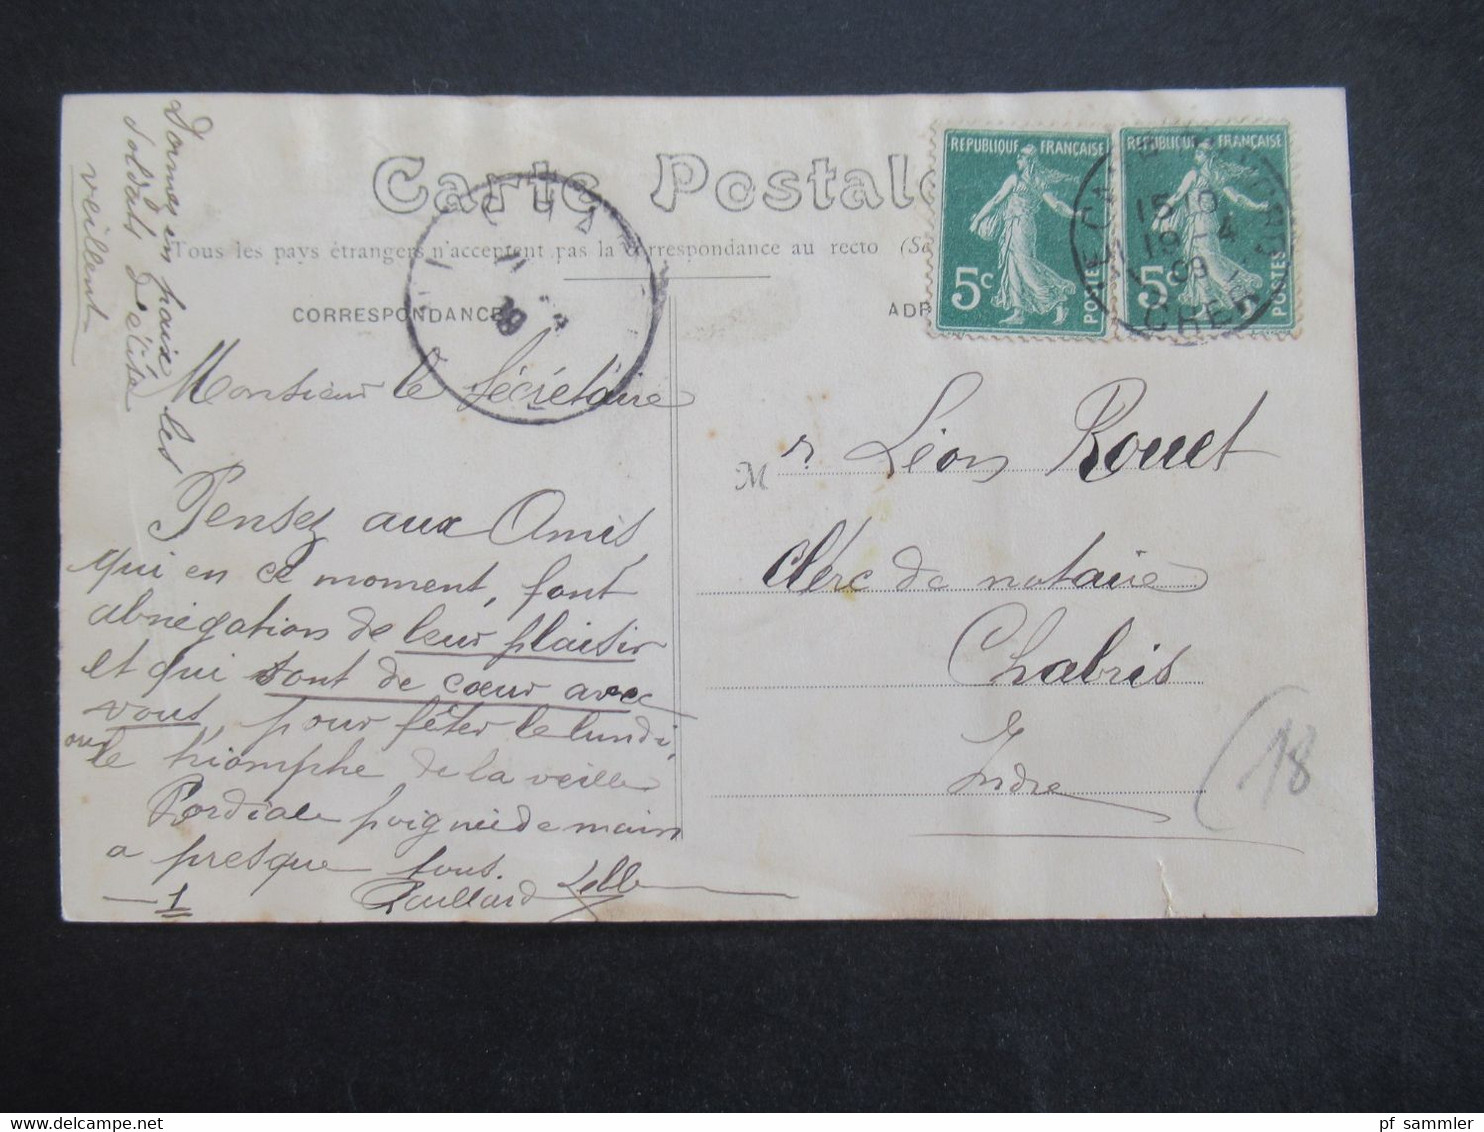 Carte Postale
Tous les pays étrangers n'acceptent pas la correspondance au recto (Se
CORRESPONDANCE
ADR
REPUBLIQUE FRANÇAISE
5c
POSTES
REPUBLIQUE FRANÇAISE
5c
POSTES
15 10
19 - 4
09
CHER
Dormez en paix les
Soldats d'élite
veillent
Monsieur le Sécrétaire
Pensez aux Amis
qui en ce moment, font
abnégation de leur plaisir
et qui sont de cœur avec
vous, pour fêter le lundi,
le triomphe de la veille
Cordiale poignée de main
a presque tous.
1
Paillard
M r Léon Rouet
Clerc de notaire
Chabris
Indre
(18
www.delcampe.net
pf sammler